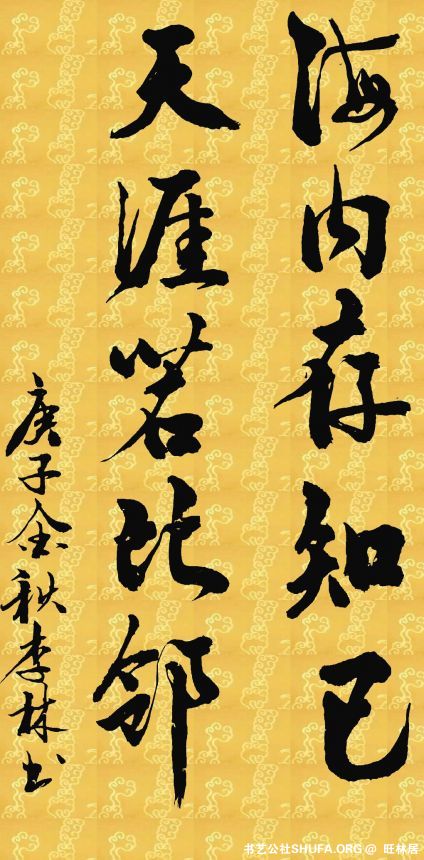 海内存知己
天涯若比邻
庚子金秋李林书
书艺公社SHUFA.ORG @ 旺林居